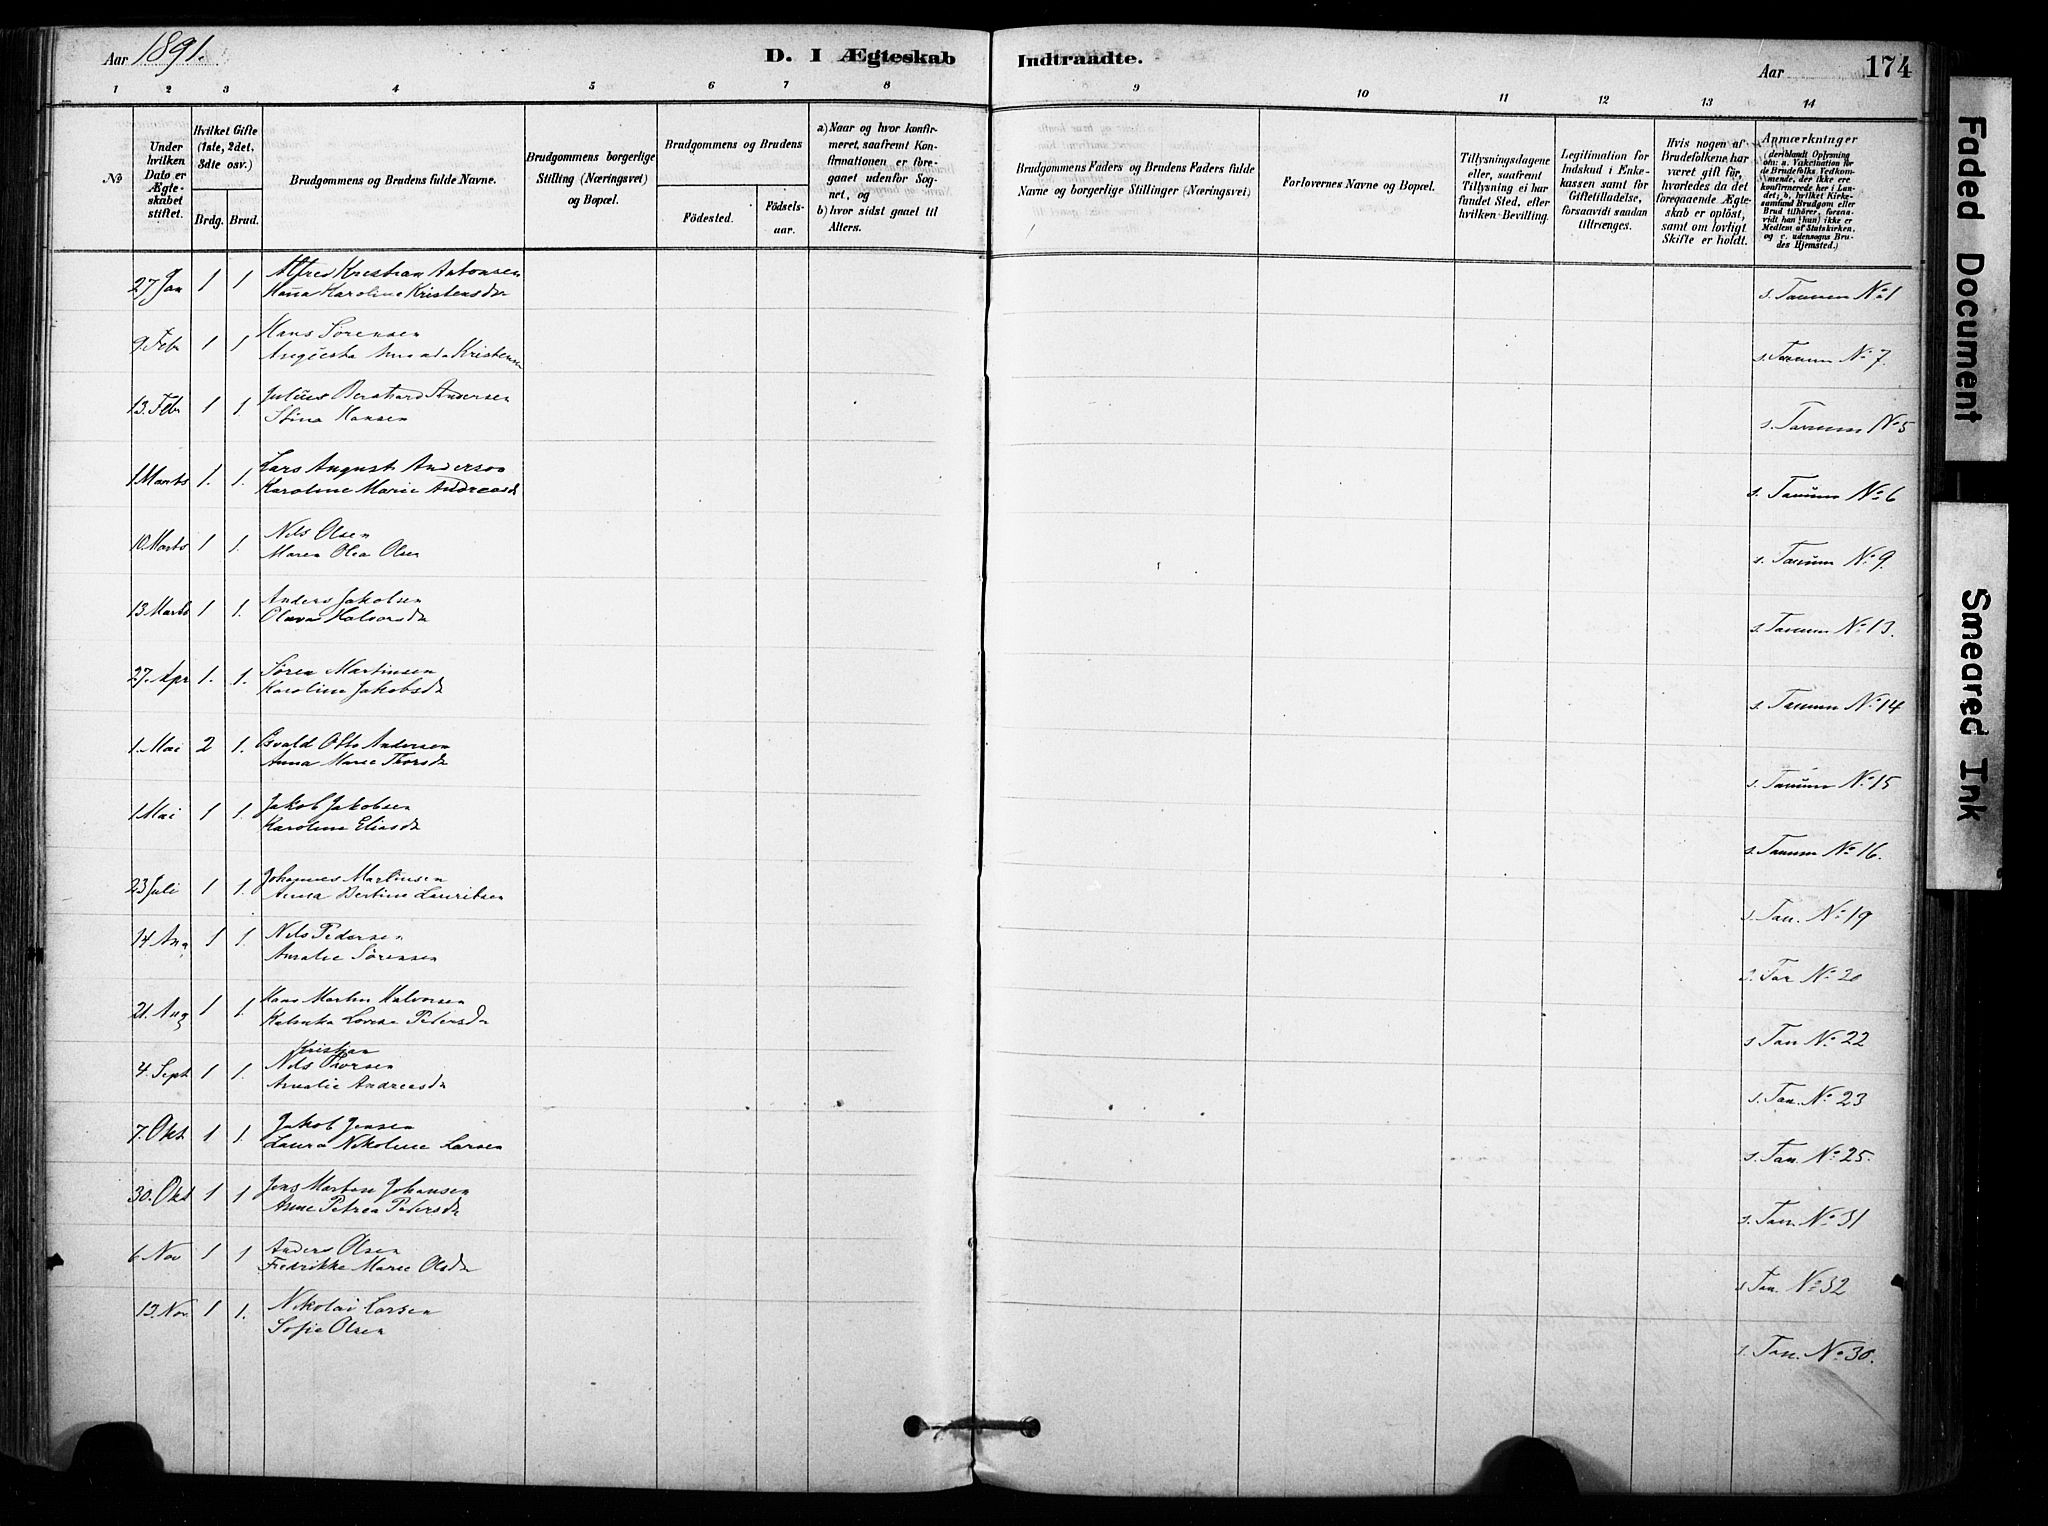 Aar 1891.
D. I Ægteskab Indtraadte.
Aar
174
1 2 3 4 5 6 7 8 9 10 11 12 13 14
№
Under hvilken Dato er Ægteskabet stiftet.
Hvilket Gifte (1ste, 2det, 3dte osv.)
Brdg. Brud.
Brudgommens og Brudens fulde Navne.
Brudgommens borgerlige Stilling (Næringsvei) og Bopæl.
Brudgommens og Brudens
Fødested. Fødselsaar.
a) Naar og hvor konfirmeret, saafremt Konfirmationen er foregaaet udenfor Sognet, og
b) hvor sidst gaaet til Alters.
Brudgommens Faders og Brudens Faders fulde Navne og borgerlige Stillinger (Næringsvei)
Forlovernes Navne og Bopæl.
Tillysningsdagene eller, saafremt Tillysning ei har fundet Sted, efter hvilken Bevilling.
Legitimation for Indskud i Enkekassen samt for Giftetilladelse, forsaavidt saadan tiltrænges.
Hvis nogen af Brudefolkene har været gift før, hvorledes da det foregaaende Ægteskab er opløst, samt om lovligt Skifte er holdt.
Anmærkninger (deriblandt Oplysning om: a. Vakcination for de Brudefolks Vedkommende, der ikke ere konfirmerede her i Landet; b. hvilket Kirkesamfund Brudgom eller Brud tilhører, forsaavidt han (hun) ikke er Medlem af Statskirken, og c. udensogns Brudes Hjemsted.)
27 Jan 1 1 Alfred Kristian
Karoline Kristensdr s. Tanum No 1
9. Feb 1 1 Hans Sørensen
Augusta Amanda Kristensen s. Tanum No 7.
13. Feb 1 1. Julius Bernhard Andersen
Stina Hansen s. Tanum No 5
1 Marts 1. 1. Lars August Anderson
Karoline Marie Andreasdr s. Tanum No 6
10. Marts 1 1. Nils Olsen
Maren Olea Olsen s. Tanum No 9.
13. Marts 1 1. Anders Jakobsen
Olava Halvorsdr s. Tanum No 13.
27. Apr 1. 1. Søren Martinsen
Karoline Jakobsdr s. Tanum No 14
1. Mai 2 1. Osvald Otto Andersen
Anna Marie Thorsdr s. Tanum No 15
1 Mai 1 1. Jakob Jakobsen
Karoline Eliasdr s. Tanum No 16.
23 Juli 1 1. Johannes Martinsen
Anna Bertine Lauritsen s. Tan. No 19
14 Aug 1 1. Nils Pedersen
Amalie Sørensen s. Tan No 20
21. Aug 1 1. Hans Martin Halvorsen
Lovise Pedersdr s Tan No 22
4. Sept 1 1. Kristian
Nils Thorsen
Amalie Andreasdr s. Tan. No 23
7. Okt 1 1. Jakob Jensen
Laura Nikoline Larsen s. Tan. No 25.
30. Okt 1 1 Jens Martin Johansen
Anne Petrea Pedersdr s. Tan No 31
6 Nov 1 1 Anders Olsen
Fredrikke Marie Olsdr s Tan. No 32
13. Nov 1 1. Nikolai Larsen
Sofie Olsen s. Tan. No 30.
Faded Document
Smeared Ink